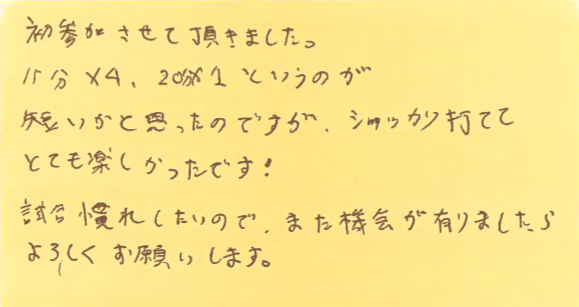 初参加させて頂きました。
15分×4、20分×1というのが
短いかと思ったのですが、シッカリ打てて
とても楽しかったです!
試合慣れしたいので、また機会が有りましたら
よろしくお願いします。